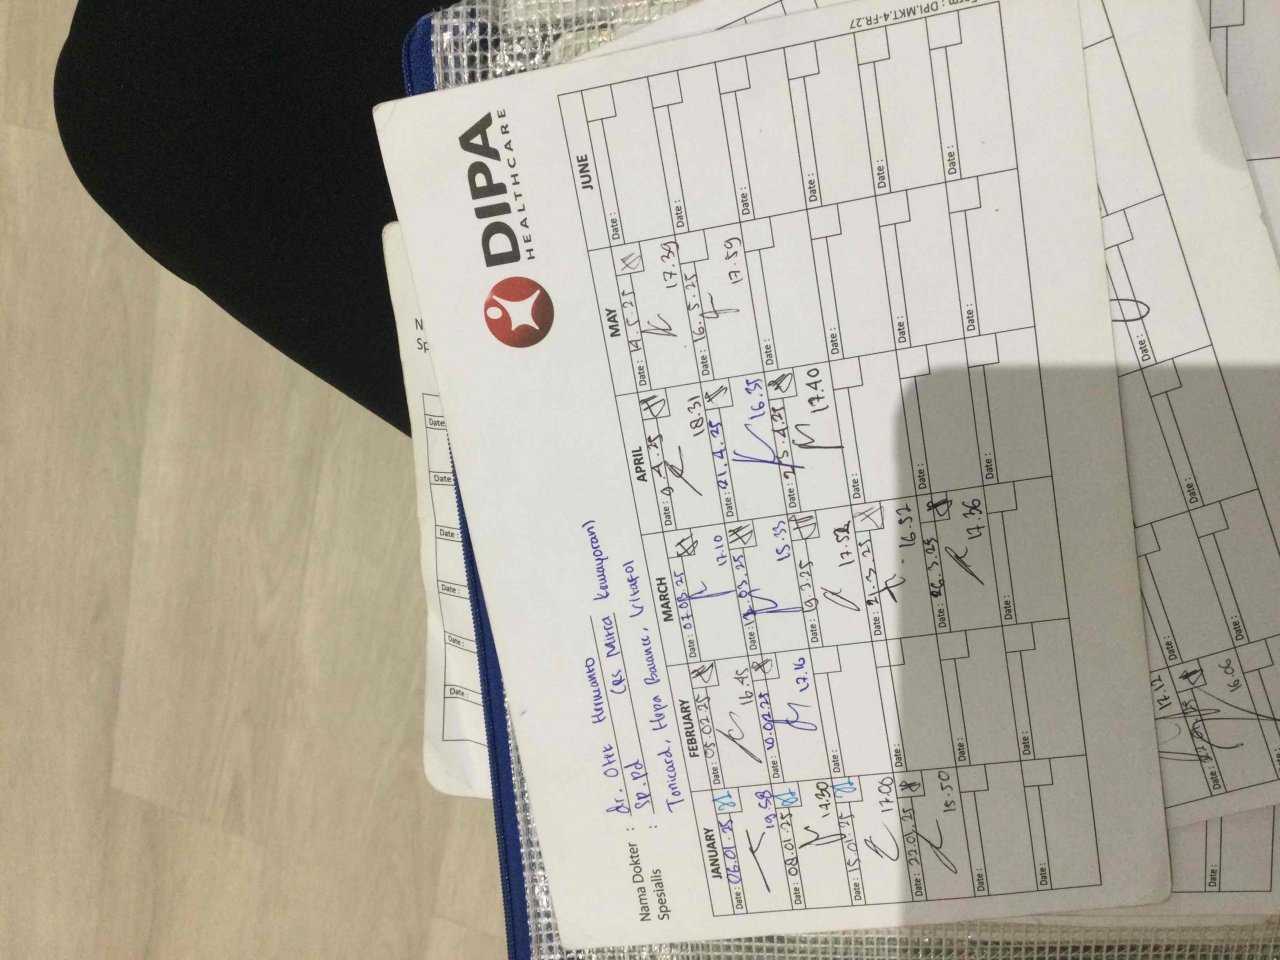 Form : DPI.MKT.4-FR.27
DIPA
HEALTHCARE
Nama Dokter : dr. Otte Hermanto
Spesialis : Sp.Pd (RS Mitra Kemayoran)
Tonicard, Hepa Balance,
JANUARY FEBRUARY MARCH APRIL MAY JUNE
Date : 06.01.25 Date : 05.02.25 Date : 07.03.25 Date : 9.4.25 Date : 14.5.25 Date :
19.58 16.45 17.10 18.31 17.39
Date : 08.01.25 Date : 10.02.25 Date : 12.03.25 Date : 21.4.25 Date : 16.5.25 Date :
17.30 17.16 15.33 16.35 17.59
Date : 15.01.25 Date : Date : 19.3.25 Date : 25.4.25 Date : Date :
17.00 17.52 17.40
Date : 22.01.25 Date : Date : 21.3.25 Date : Date : Date :
15.50 16.52
Date : Date : Date : 26.3.25 Date : Date : Date :
17.36
Date : Date : Date : Date : Date : Date :
N
Sp
Date :
Date :
Date :
Date :
Date :
Date :
Date :
Date :
17.12
Date :
16.06
Date :